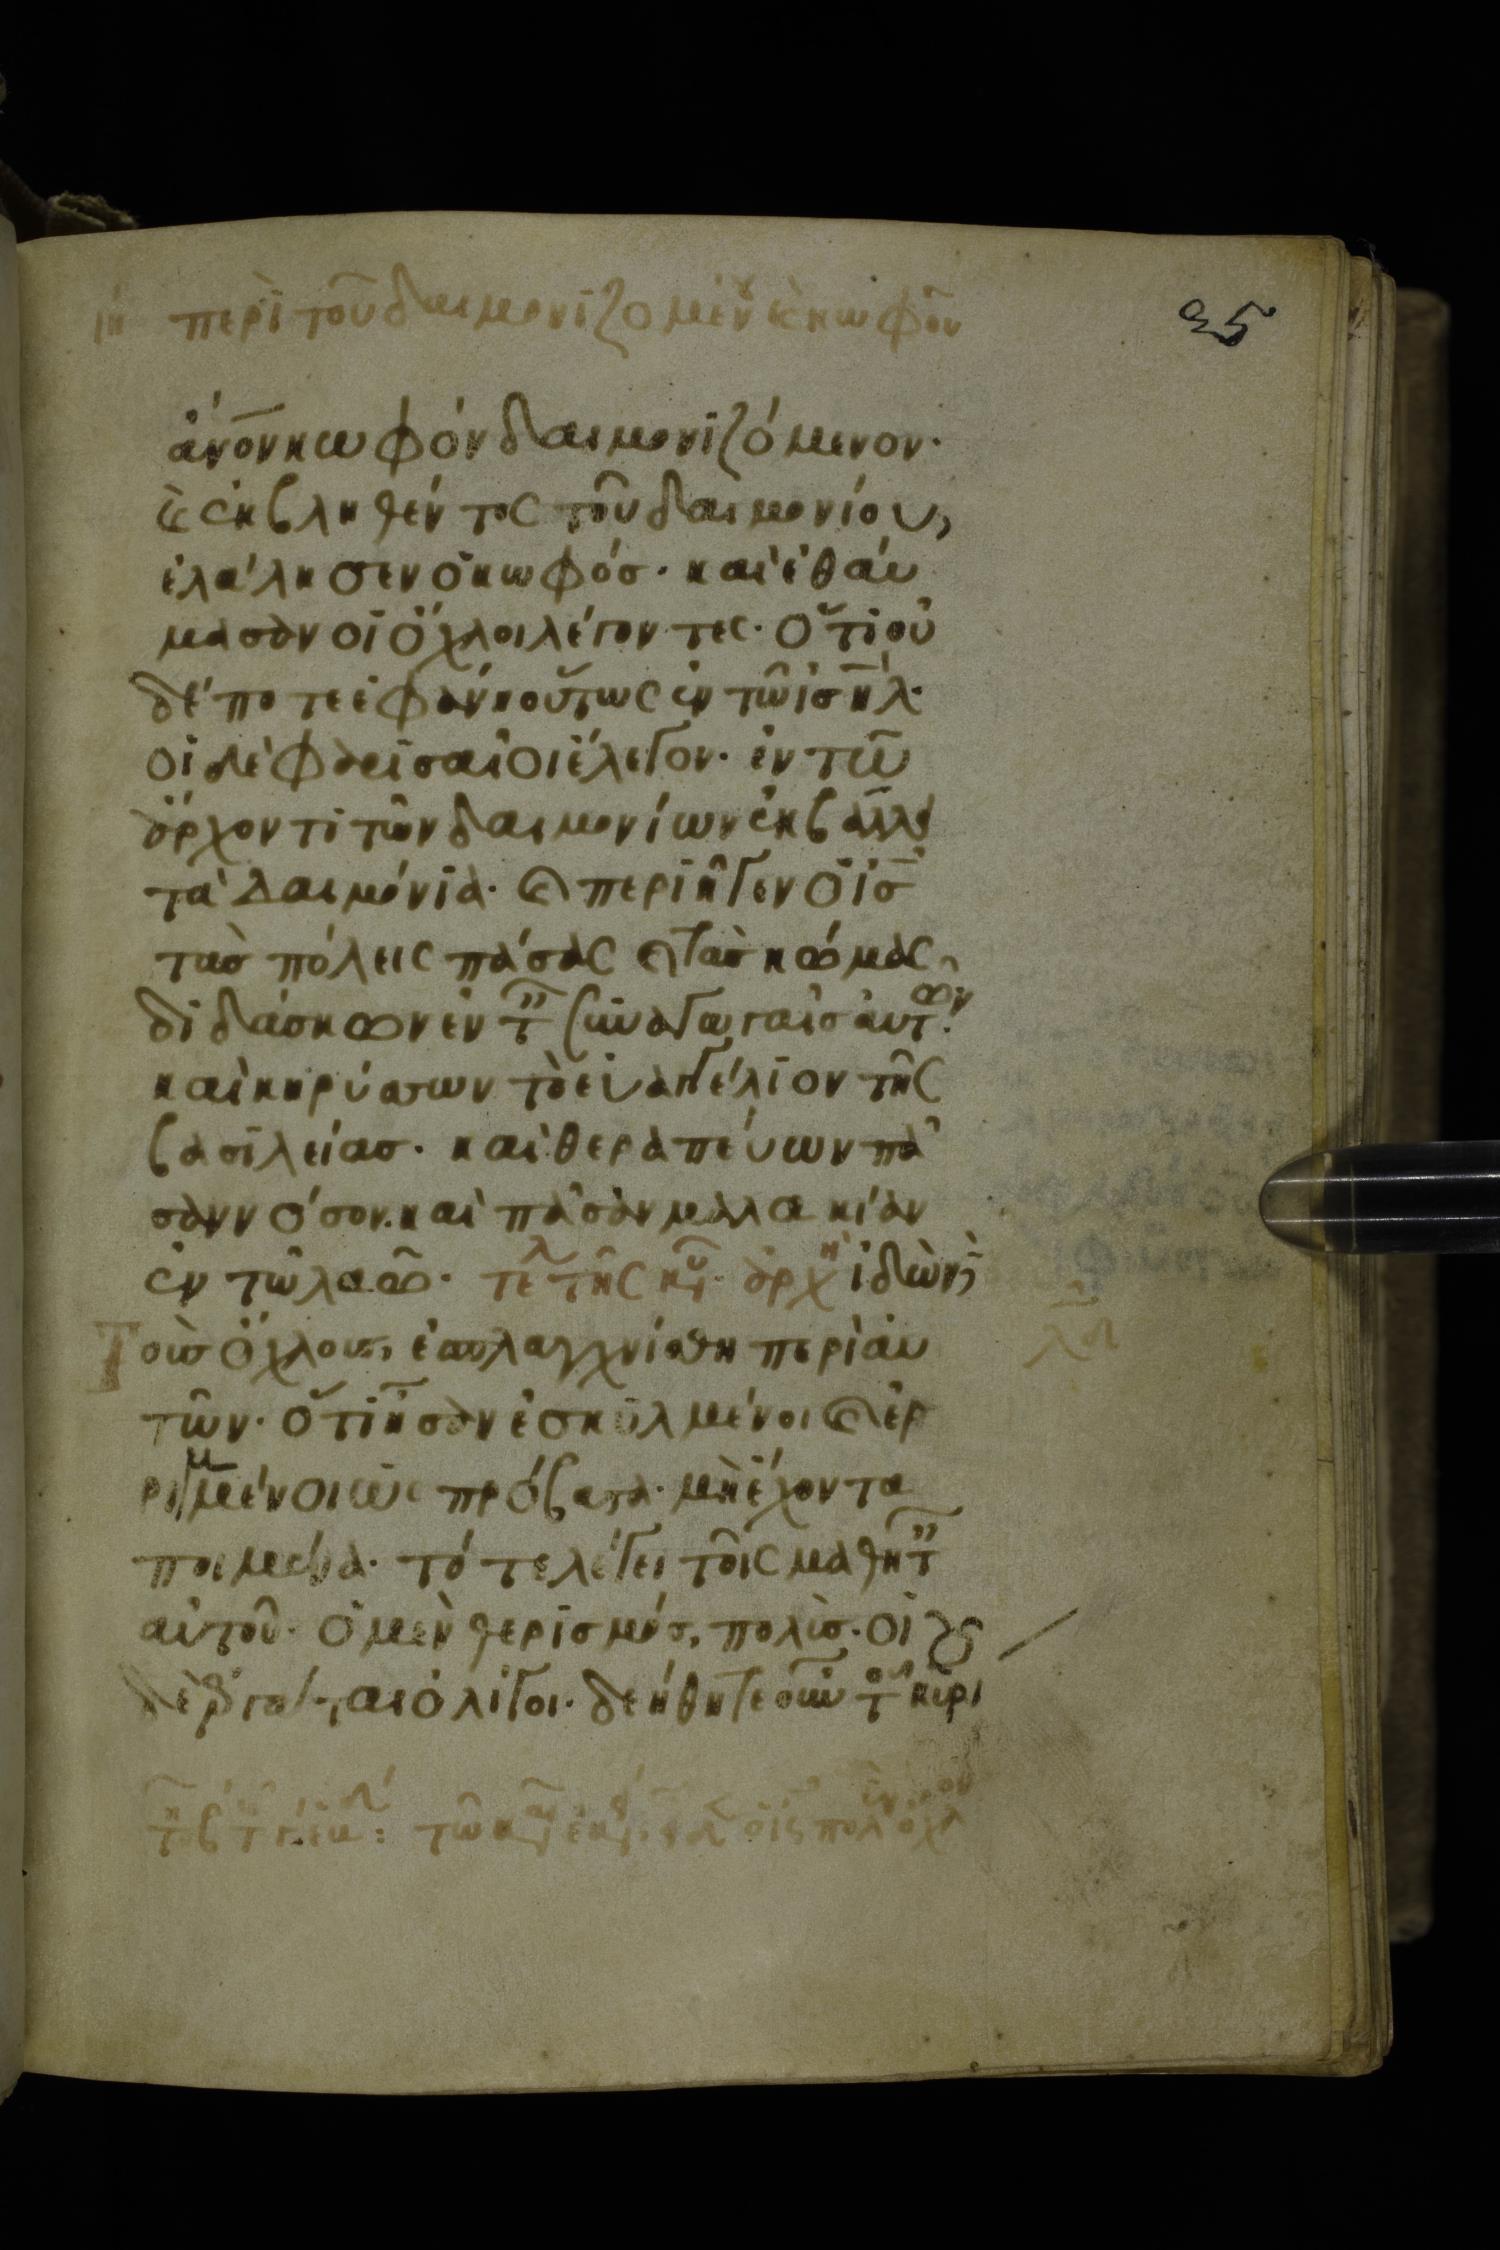 ιη περὶ τοῦ δαιμονιζομένου κ̀ κωφοῦ
35
ἀν̅ο̅ν̅ κωφόν δαιμονιζόμενον·
κ̀ ἐκβληθέντος τοῦ δαιμονίου,
ἐλάλησεν ὁ κωφόσ· καὶ ἐθαύ
μασαν οἱ ὄχλοι λέγοντες· ὅτι οὐ
δέποτε ἐφάνη οὕτως ἐν τῶ ἰσ̅η̅λ·
οἱ δὲ φαρισαῖοι ἔλεγον· ἐν τῶ
ἄρχοντι τῶν δαιμονίων ἐκβάλλει
τὰ δαιμόνια· κ̀ περιῆγεν ὁ ἰσ̅
τὰσ πόλεις πάσας κ̀ τὰσ κώμας,
διδάσκων ἐν τ̅ συναγωγαῖσ αὐτῶν·
καὶ κηρύσσων τὸ εὐαγγέλιον τῆς
βασιλείασ· καὶ θεραπεύων πᾶ
σαν νόσον· καὶ πᾶσαν μαλακίαν
ἐν τῶ λαῶ· τελ τῆς κυ· ἀρχὴ ἰδὼν
Τοὺσ ὄχλουσ, ἐσπλαγχνίσθη περὶ αὐ
τῶν· ὅτι ἦσαν ἐσκυλμένοι κ̀ ἐρ
ριμμένοι ὡς πρόβατα· μὴ ἔχοντα
ποιμένα· τότε λέγει τοῖς μαθητ̅
αὐτοῦ· ὁ μὲν θερισμόσ, πολὺσ· οἱ
δὲ ἐργάται ὀλίγοι· δεήθητε οὖν τοῦ κυρί